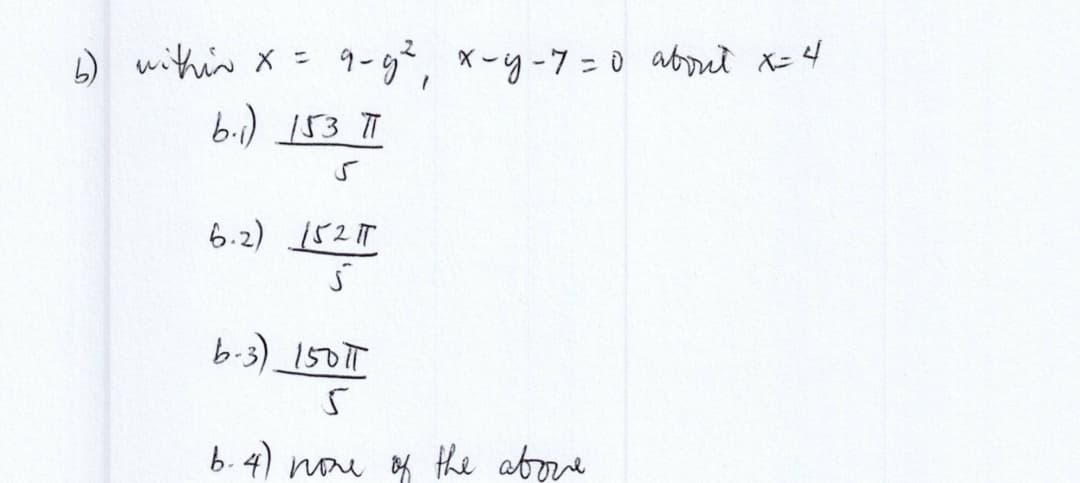 b) within x = 9-y², x-y-7=0 about x=4
b.1) 153 π
5
b.2) 152 π
5
b-3) 150 π
5
b-4) none of the above